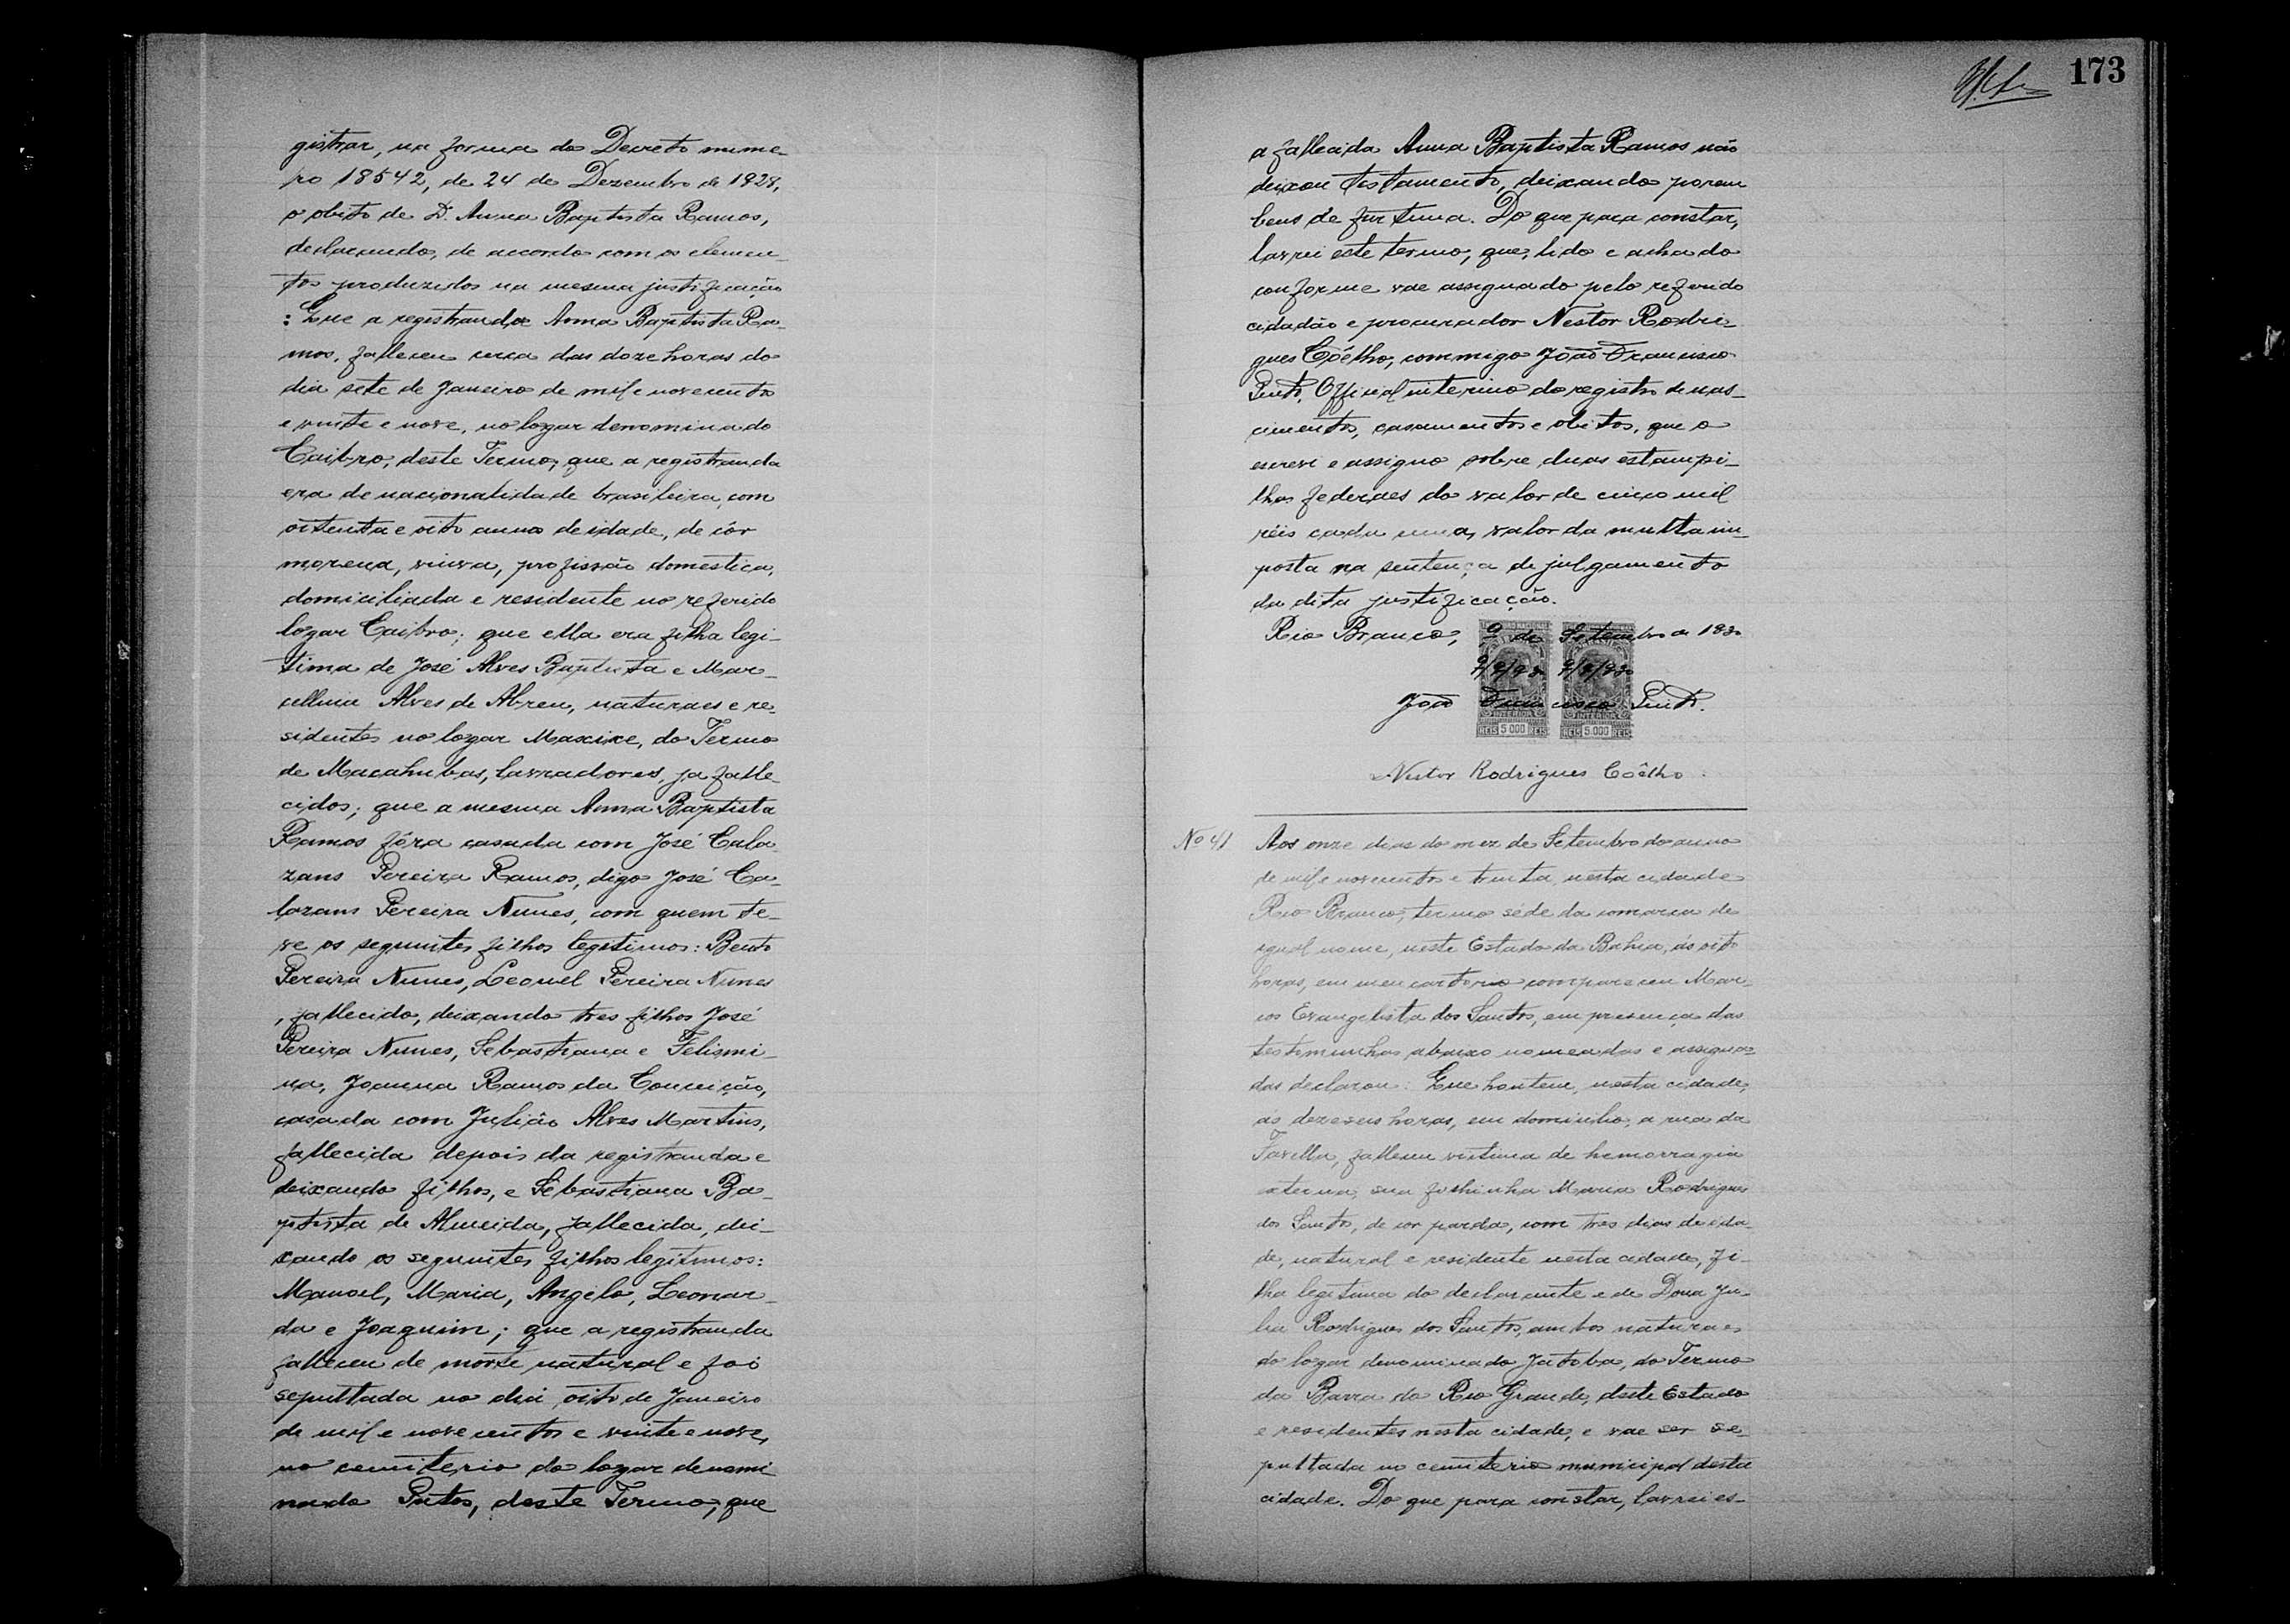 gistrar, na forma do Decreto nume-
ro 18542, de 24 de Dezembro de 1928,
o obito de D. Anna Baptista Ramos,
declarando, de accordo com os elemen-
tos produzidos na mesma justificação
: Que a registranda Anna Baptista Ra-
mos, falleceu cerca das doze horas do
dia sete de Janeiro de mil e novecentos
e vinte e nove, no logar denominado
Caibro, deste Termo; que a registranda
era de nacionalidade brasileira, com
oitenta e oito annos de idade, de côr
morena, viuva, profissão domestica,
domiciliada e residente no referido
logar Caibro; que ella era filha legi-
tima de José Alves Baptista e Mar-
cellina Alves de Abreu, naturaes e re-
sidentes no logar Maxixe, do Termo
de Macahubas, lavradores, ja falle-
cidos; que a mesma Anna Baptista
Ramos fôra casada com José Cala-
zans Pereira Ramos, digo José Ca-
lazans Pereira Nunes, com quem te-
ve os seguintes filhos legitimos: Bento
Pereira Nunes, Leonel Pereira Nunes
, fallecido, deixando tres filhos José
Pereira Nunes, Sebastiana e Felismi-
na, Joanna Ramos da Conceição,
casada com Julião Alves Martins,
fallecida depois da registranda e
deixando filhos, e Sebastiana Ba-
ptista de Almeida, fallecida, dei-
xando os seguintes filhos legitimos:
Manoel, Maria, Angelo, Leonar-
da e Joaquim; que a registranda
falleceu de morte natural e foi
sepultada no dia oito de Janeiro
de mil e novecentos e vinte e nove,
no cemiterio do logar denomi
nado Patos, deste Termo; que
173
a fallecida Anna Baptista Ramos não
deixou testamento, deixando porem
bens de fortuna. Do que para constar,
lavrei este termo, que, lido e achado
conforme vae assignado pelo referido
cidadão e procurador Nestor Rodri-
gues Coêlho, commigo João Francisco
Pinto, Official interino do registro de nas-
cimentos, casamentos e obitos, que o
escrevi e assigno sobre duas estampi-
lhas federaes do valor de cinco mil
réis cada uma, valor da multa im-
posta na sentença de julgamento
da dita justificação.
Rio Branco, 9 de Setembro de 1930
9/9/930 9/9/930
João Francisco Pinto.
INTERIOR INTERIOR
REIS 5000 REIS REIS 5.000 REIS
Nestor Rodrigues Coêlho.
No 41 Aos onze dias do mez de Setembro do anno
de mil e novecentos e trinta, nesta cidade
Rio Branco, termo séde da comarca de
igual nome, neste Estado da Bahia, ás oito
horas, em meu cartorio compareceu Mar-
cos Evangelista dos Santos, em presença das
testemunhas abaixo nomeadas e assigna-
das declarou: Que hontem, nesta cidade,
as dezeseis horas, em domicilio, a rua da
Favella, falleceu victima de hemorragia
externa, sua filhinha Maria Rodrigues
dos Santos, de cor parda, com tres dias de ida-
de, natural e residente nesta cidade, fi-
lha legitima do declarante e de Dona Ju-
lia Rodrigues dos Santos, ambos naturaes
do logar denominado Jatoba, do Termo
da Barra do Rio Grande, deste Estado
e residentes nesta cidade, e vae ser se-
pultada no cemiterio municipal desta
cidade. Do que para constar, lavrei es-